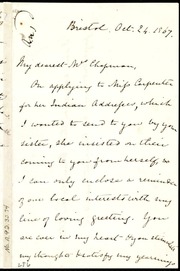 Bristol, Oct. 24. 1867.
My dearest Mrs Chapman,
On applying to Miss Carpenter
for her Indian Addresses, which
I wanted to send to you by your
sister, she insisted on their
coming to you from herself, so
I can only enclose a reminder
of our local interests with my
line of loving greeting. You
are ever in my heart
my thoughts my yearnings